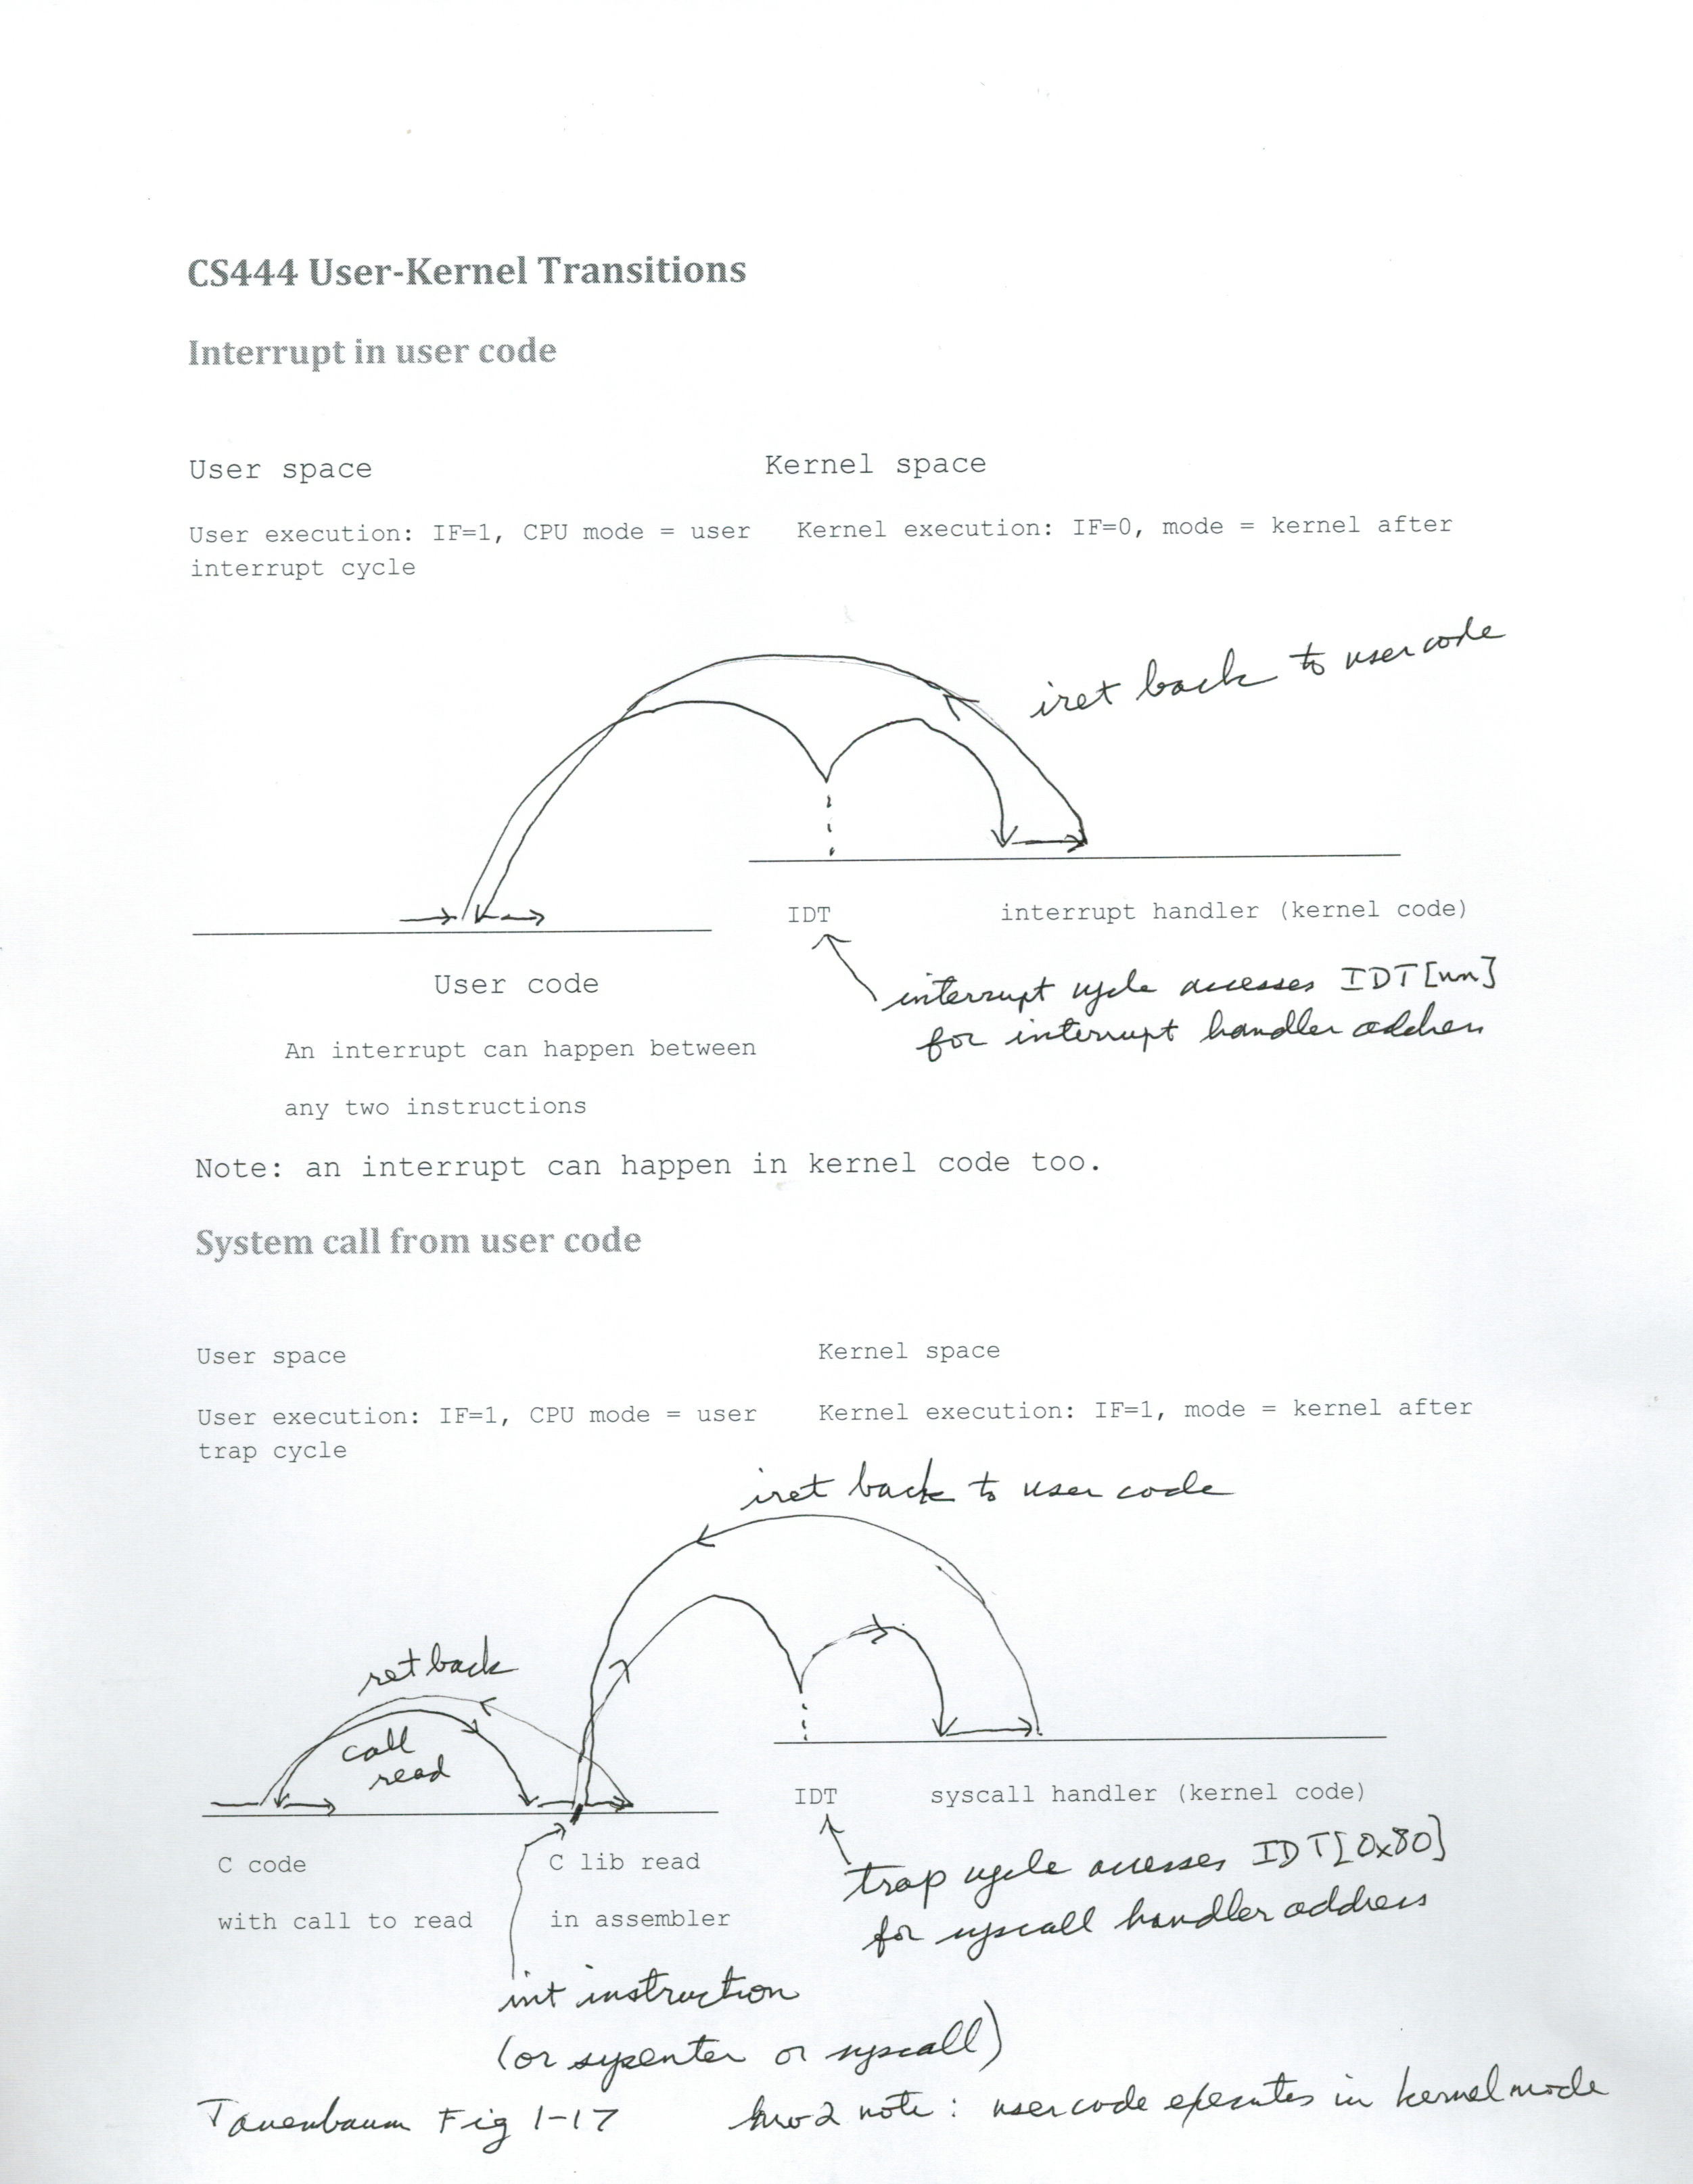 CS444 User-Kernel Transitions
Interrupt in user code
User space Kernel space
User execution: IF=1, CPU mode = user Kernel execution: IF=0, mode = kernel after
interrupt cycle
iret back to user code
IDT interrupt handler (kernel code)
User code
interrupt cycle accesses IDT[nn]
for interrupt handler address
An interrupt can happen between
any two instructions
Note: an interrupt can happen in kernel code too.
System call from user code
User space Kernel space
User execution: IF=1, CPU mode = user Kernel execution: IF=1, mode = kernel after
trap cycle
iret back to user code
ret back
call
read
IDT syscall handler (kernel code)
C code C lib read
with call to read in assembler
trap cycle accesses IDT[0x80]
for syscall handler address
int instruction
(or sysenter or syscall)
Tanenbaum Fig 1-17 hw2 note: user code executes in kernel mode